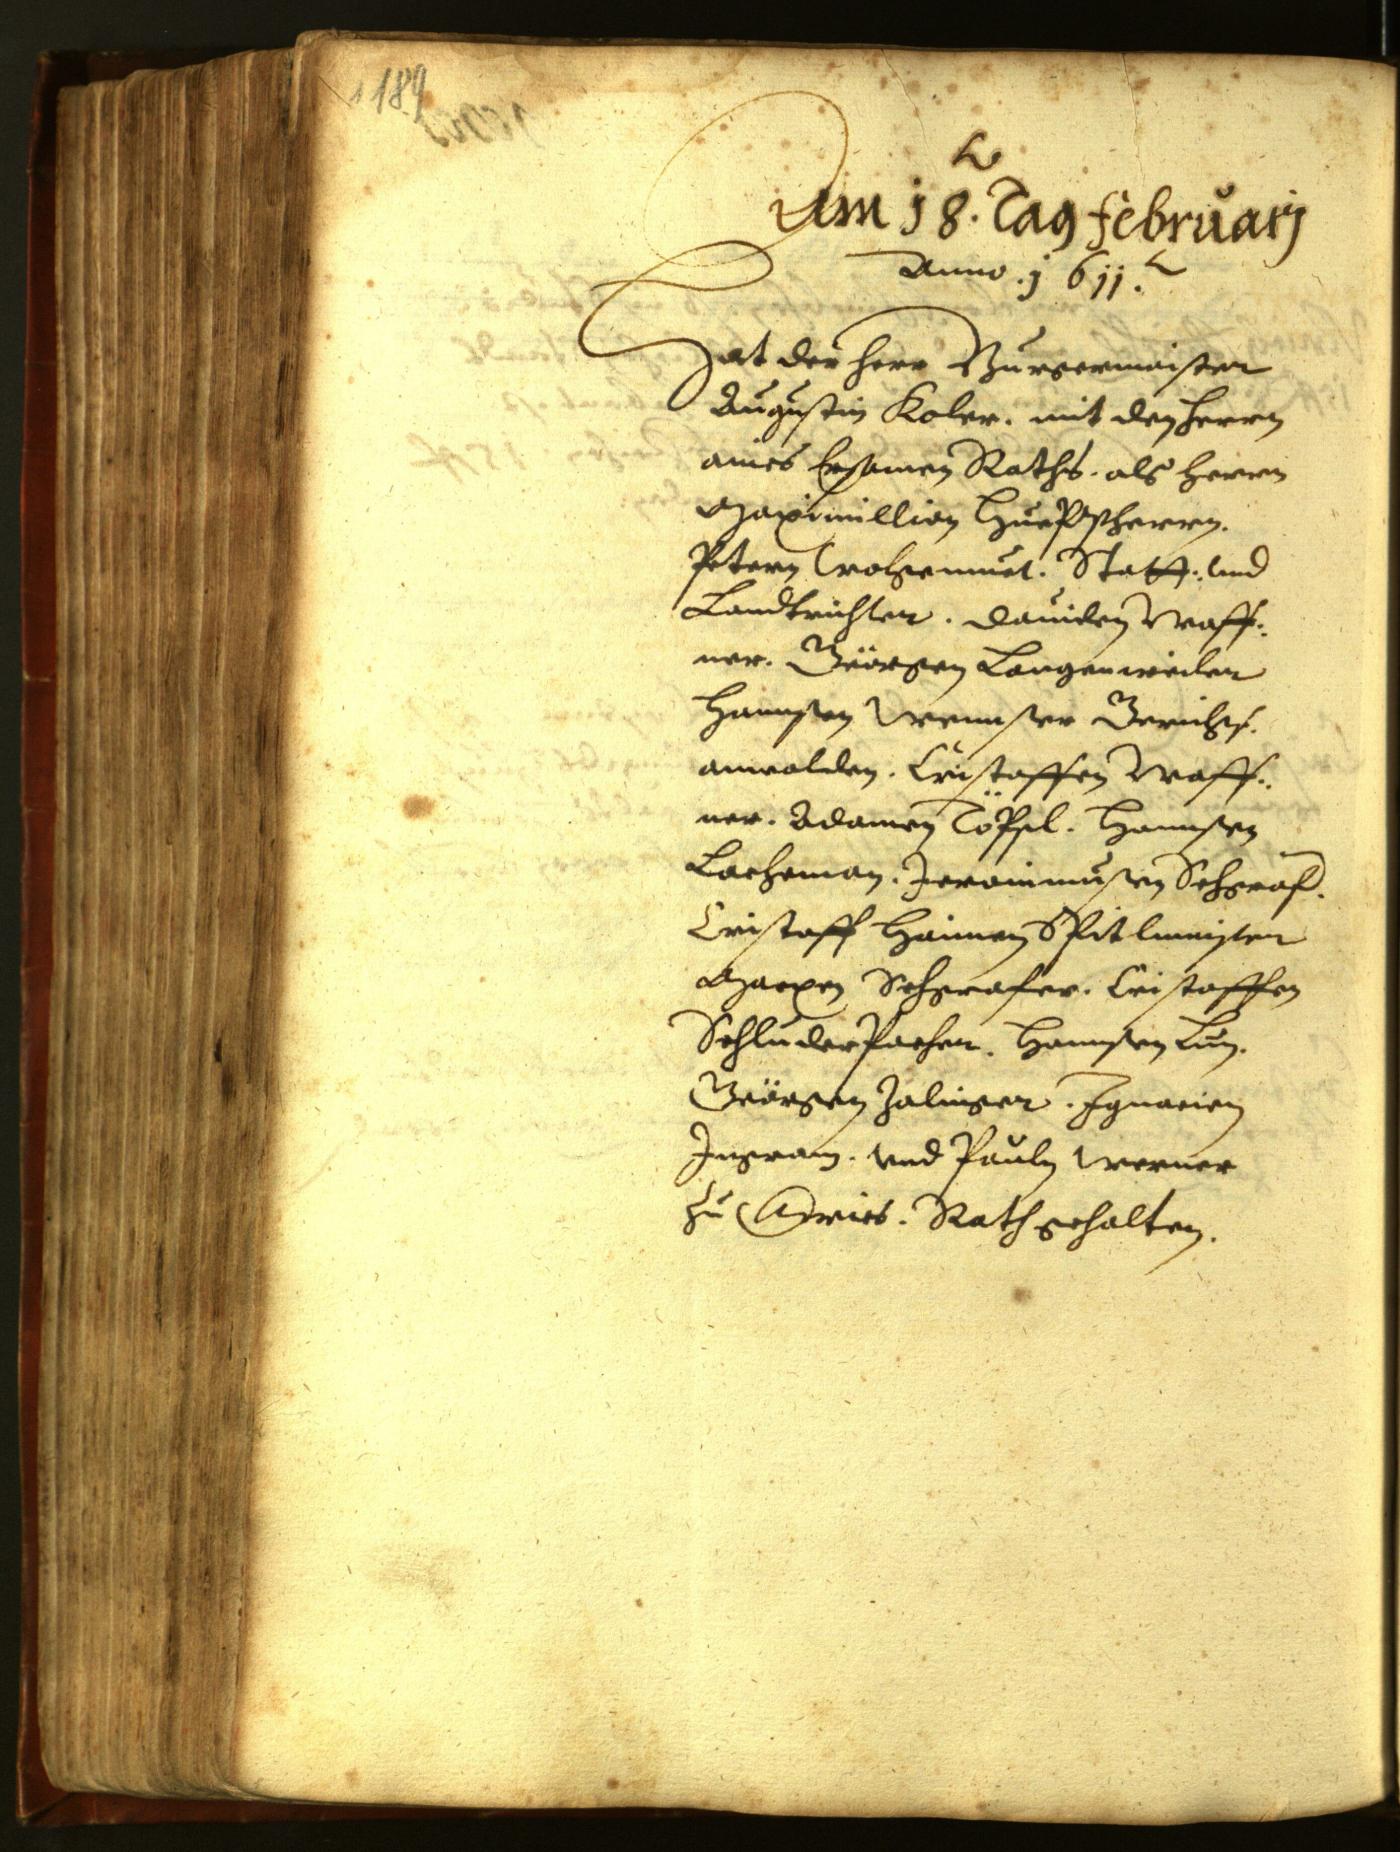 189
Am 18. Tag februarij
Anno. 1611.
Hat der herr Burgermaister
Augustin Koler. mit den herrn
aines Ersamen Raths. als herrn
Maximillian Hueppherrn.
Petern Trolgemuet. Statt: vnd
Landtrichter. Dauiden Waff:
ner. Geörgen Langenweiler
Hannsen Wennser Gerichts.
anwalden. Cristoffen Waff:
ner. Adamen Töpsl. Hannsen
Lachman. Jeronimussen Schgraf.
Cristoff Haimen Spitlmaister
Marxen Schgrafer. Cristoffen
Schluderpacher. Hannsen Lun.
Geörgen Zalinger. Ignacien
Ingram. vnd Pauln Werner
zu Gries. Rath gehalten.